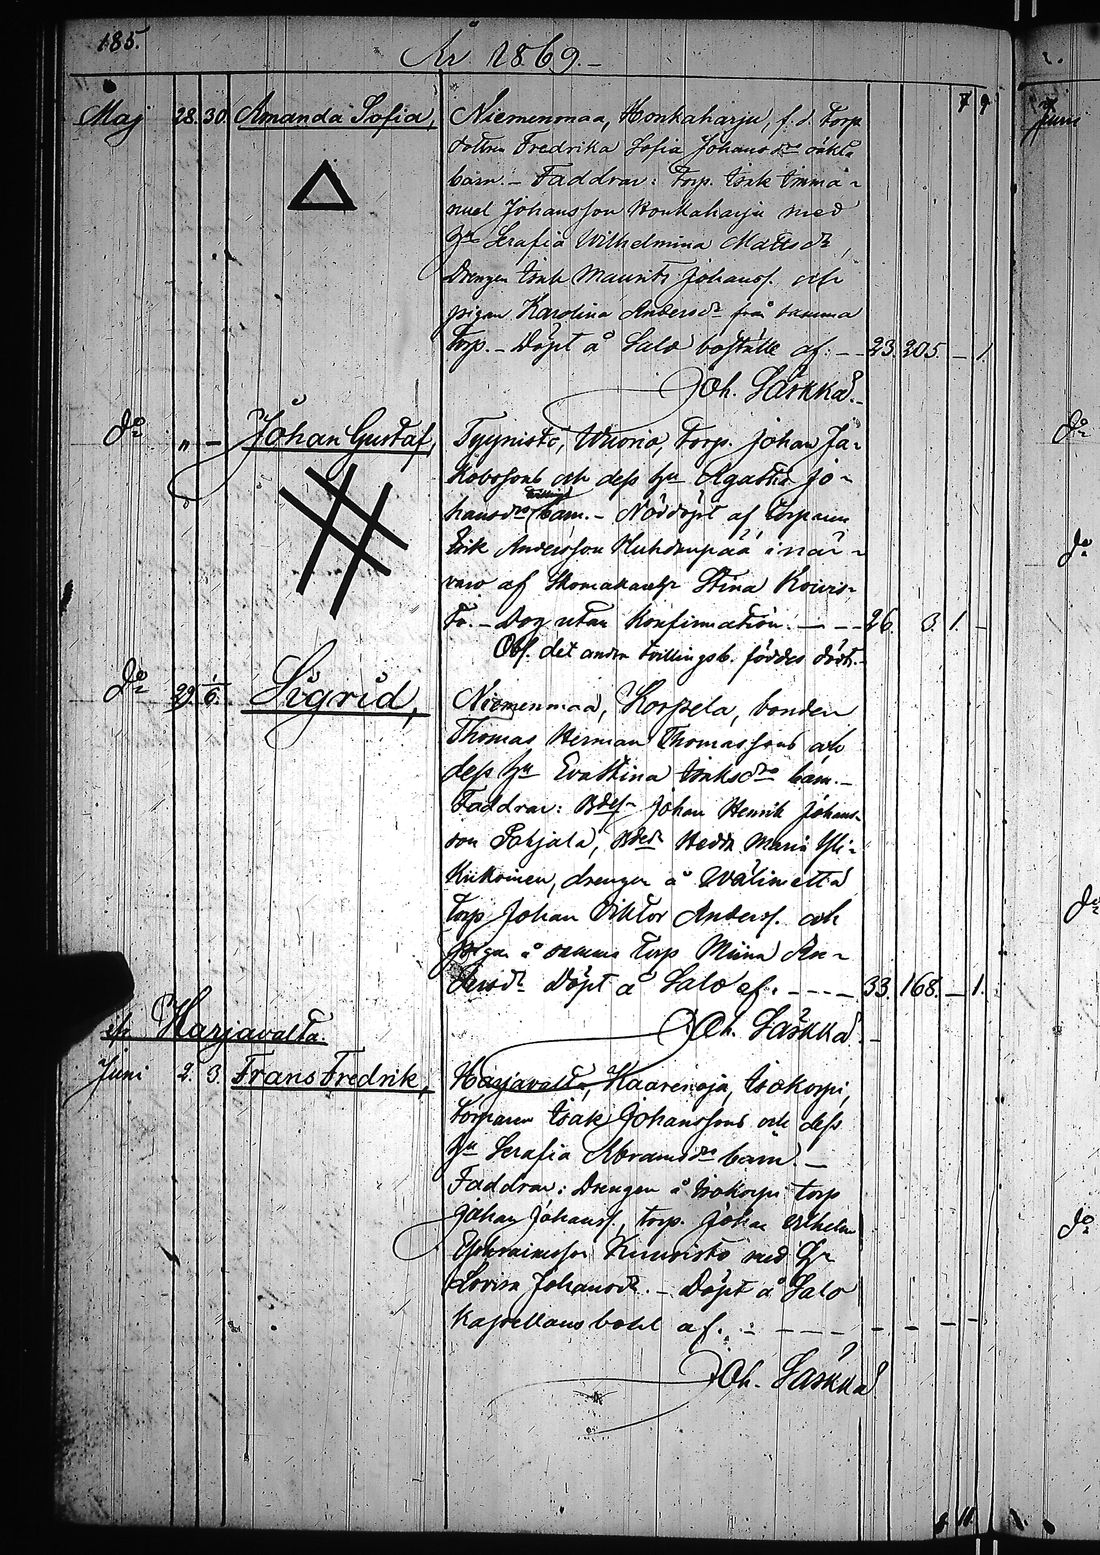 185.
År 1869.-
Maj 28. 30. Amanda Sofia, Niemenmaa, Honkaharju, f. d. Torp.
dottren Fredrika Sofia Johansdrs oäkta
barn.- Faddrar: Torp. Isak Imma-
nuel Johansson Honkaharju med
hu Serafia Wilhelmina Mattsdr,
Drengen Isak Maurits Johanss. och
pigan Karolina Andersdr från samma
Torp.- Döpt å Salo boställe af: - - 23. 205. - 1.
Joh. Laskka.
do „ - Johan Gustaf, Tyynisto, Wuorio, Torp. Johan Ja-
kobssons och dess hu Agatha Jo-
hansdrs tvilling barn.- Nöddöpt af Torparen
Isik Andersson Huhdanpää i när-
varo af Skomakareh Stina Koivis-
to.- Dog utan konfirmation. - - - 26. 3. 1. -
Obs. det andra tvillingsb. föddes dödt.-
do 29. 1/6. Sigrid, Niemenmaa, Korpela, bonden
Thomas Herman Thomassons och
dess hu Eva Stina Isaksdrs barn.-
Faddrar: Bdes. Johan Henrik Johans-
son Pohjala, Bded. Hedda Maria Yli-
Kiikoinen, drengen å Wälimettä
Torp Johan Viktor Anderss. och
pigan å samma Torp Miina An-
dersdr Döpt å Salo af: - - - - 33. 168. - 1.
Joh. Laskka.
Harjavalta.
Juni 2. 3. Frans Fredrik, Harjavalta, Haarenoja, Isokorpi,
Torparen Isak Johanssons och dess
hu Serafia Abramsdrs barn.-
Faddrar: Drengen å Isokorpi torp
Johan Johanss., torp. Johan Wilhelm
Ephraimsson Kuuristo med hu
Lovisa Johansdr.- Döpt å Salo
Kapellans bohl af. - - - - - - - - -
Joh. Laskka